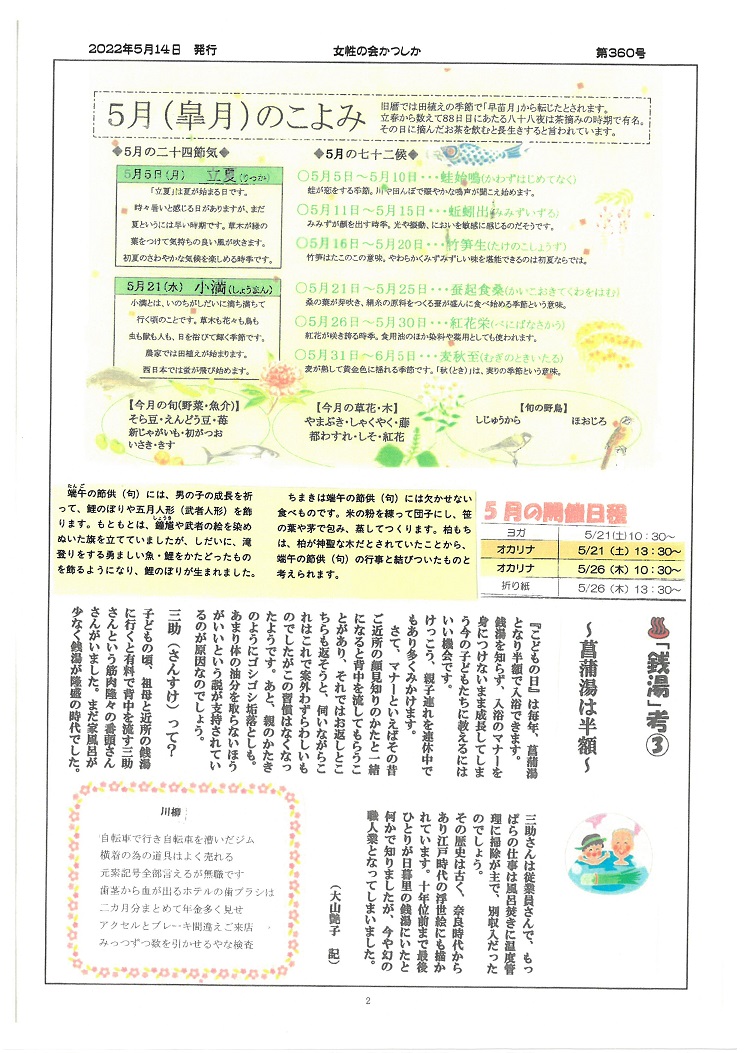 2022年5月14日　発行
女性の会かつしか
第360号
5月(皐月)のこよみ
旧暦では田植えの季節で「早苗月」から転じたとされます。
立春から数えて88日目にあたる八十八夜は茶摘みの時期で有名。
その日に摘んだお茶を飲むと長生きすると言われています。
◆5月の二十四節気◆
5月5日(月)　立夏(りっか)
「立夏」は夏が始まる日です。
時々暑いと感じる日がありますが、まだ
夏というには早い時期です。草木が緑の
葉をつけて気持ちの良い風が吹きます。
初夏のさわやかな気候を楽しめる時季です。
5月21日(水)　小満(しょうまん)
小満とは、いのちがしだいに満ち満ちて
行く頃のことです。草木も花々も鳥も
虫も獣も人も、日を浴びて輝く季節です。
農家では田植えが始まります。
西日本では蛍が飛び始めます。
◆5月の七十二候◆
〇5月5日～5月10日・・・蛙始鳴(かわずはじめてなく)
蛙が恋をする季節。川や田んぼで賑やかな鳴声が聞こえ始めます。
〇5月11日～5月15日・・・蚯蚓出(みみずいずる)
みみずが顔を出す時季。光や振動、においを敏感に感じるのだそうです。
〇5月16日～5月20日・・・竹笋生(たけのこしょうず)
竹笋はたこのこの意味。やわらかくみずみずしい味を堪能できるのは初夏ならでは。
〇5月21日～5月25日・・・蚕起食桑(かいこおきてくわをはむ)
桑の葉が芽吹き、絹糸の原料をつくる蚕が盛んに食べ始める季節という意味。
〇5月26日～5月30日・・・紅花栄(べにばなさかう)
紅花が咲き誇る時季。食用油のほか染料や薬用としても使われます。
〇5月31日～6月5日・・・麦秋至(むぎのときいたる)
麦が熟して黄金色に揺れる季節です。「秋(とき)」は、実りの季節という意味。
【今月の旬(野菜・魚介)】
そら豆・えんどう豆・苺
新じゃがいも・初がつお
いさき・きす
【今月の草花・木】
やまぶき・しゃくやく・藤
都わすれ・しそ・紅花
【旬の野鳥】
しじゅうから　ほおじろ
たんご
端午の節供（句）には、男の子の成長を祈
って、鯉のぼりや五月人形（武者人形）を飾
しょうき
ります。もともとは、鐘馗や武者の絵を染め
ぬいた旗を立てていましたが、しだいに、滝
登りをする勇ましい魚・鯉をかたどったもの
を飾るようになり、鯉のぼりが生まれました。
ちまきは端午の節供（句）には欠かせない
食べものです。米の粉を練って団子にし、笹
の葉や茅で包み、蒸してつくります。柏もち
は、柏が神聖な木だとされていたことから、
端午の節供（句）の行事と結びついたものと
考えられます。
5月の開催日程
ヨガ　5/21(土)10：30～
オカリナ　5/21（土）13：30～
オカリナ　5/26（木）10：30～
折り紙　5/26（木）13：30～
♨「銭湯」考③
～菖蒲湯は半額～
『こどもの日』は毎年、菖蒲湯
となり半額で入浴できます。
銭湯を知らず、入浴のマナーを
身につけないまま成長してしま
う今の子どもたちに教えるには
いい機会です。
けっこう、親子連れを連休中で
もあり多くみかけます。
さて、マナーといえばその昔
ご近所の顔見知りのかたと一緒
になると背中を流してもらうこ
とがあり、それではお返しとこ
ちらも返そうと、伺いながらこ
れはこれで案外わずらわしいも
のでしたがこの習慣はなくなっ
たようです。あと、親のかたき
のようにゴシゴシ垢落としも。
あまり体の油分を取らないほう
がいいという説が支持されてい
るのが原因なのでしょう。
三助（さんすけ）って？
子どもの頃、祖母と近所の銭湯
に行くと有料で背中を流す三助
さんという筋肉隆々の番頭さん
さんがいました。まだ家風呂が
少なく銭湯が隆盛の時代でした。
三助さんは従業員さんで、もっ
ぱらの仕事は風呂焚きに温度管
理に掃除が主で、別収入だった
のでしょう。
その歴史は古く、奈良時代から
あり江戸時代の浮世絵にも描か
れています。十年位前まで最後
ひとりが日暮里の銭湯にいたと
何かで知りましたが、今や幻の
職人業となってしまいました。
（大山艶子　記）
川柳
自転車で行き自転車を漕いだジム
横着の為の道具はよく売れる
元素記号全部言えるが無職です
歯茎から血が出るホテルの歯ブラシは
二カ月分まとめて年金多く見せ
アクセルとブレーキ間違えご来店
みっつずつ数を引かせるやな検査
2